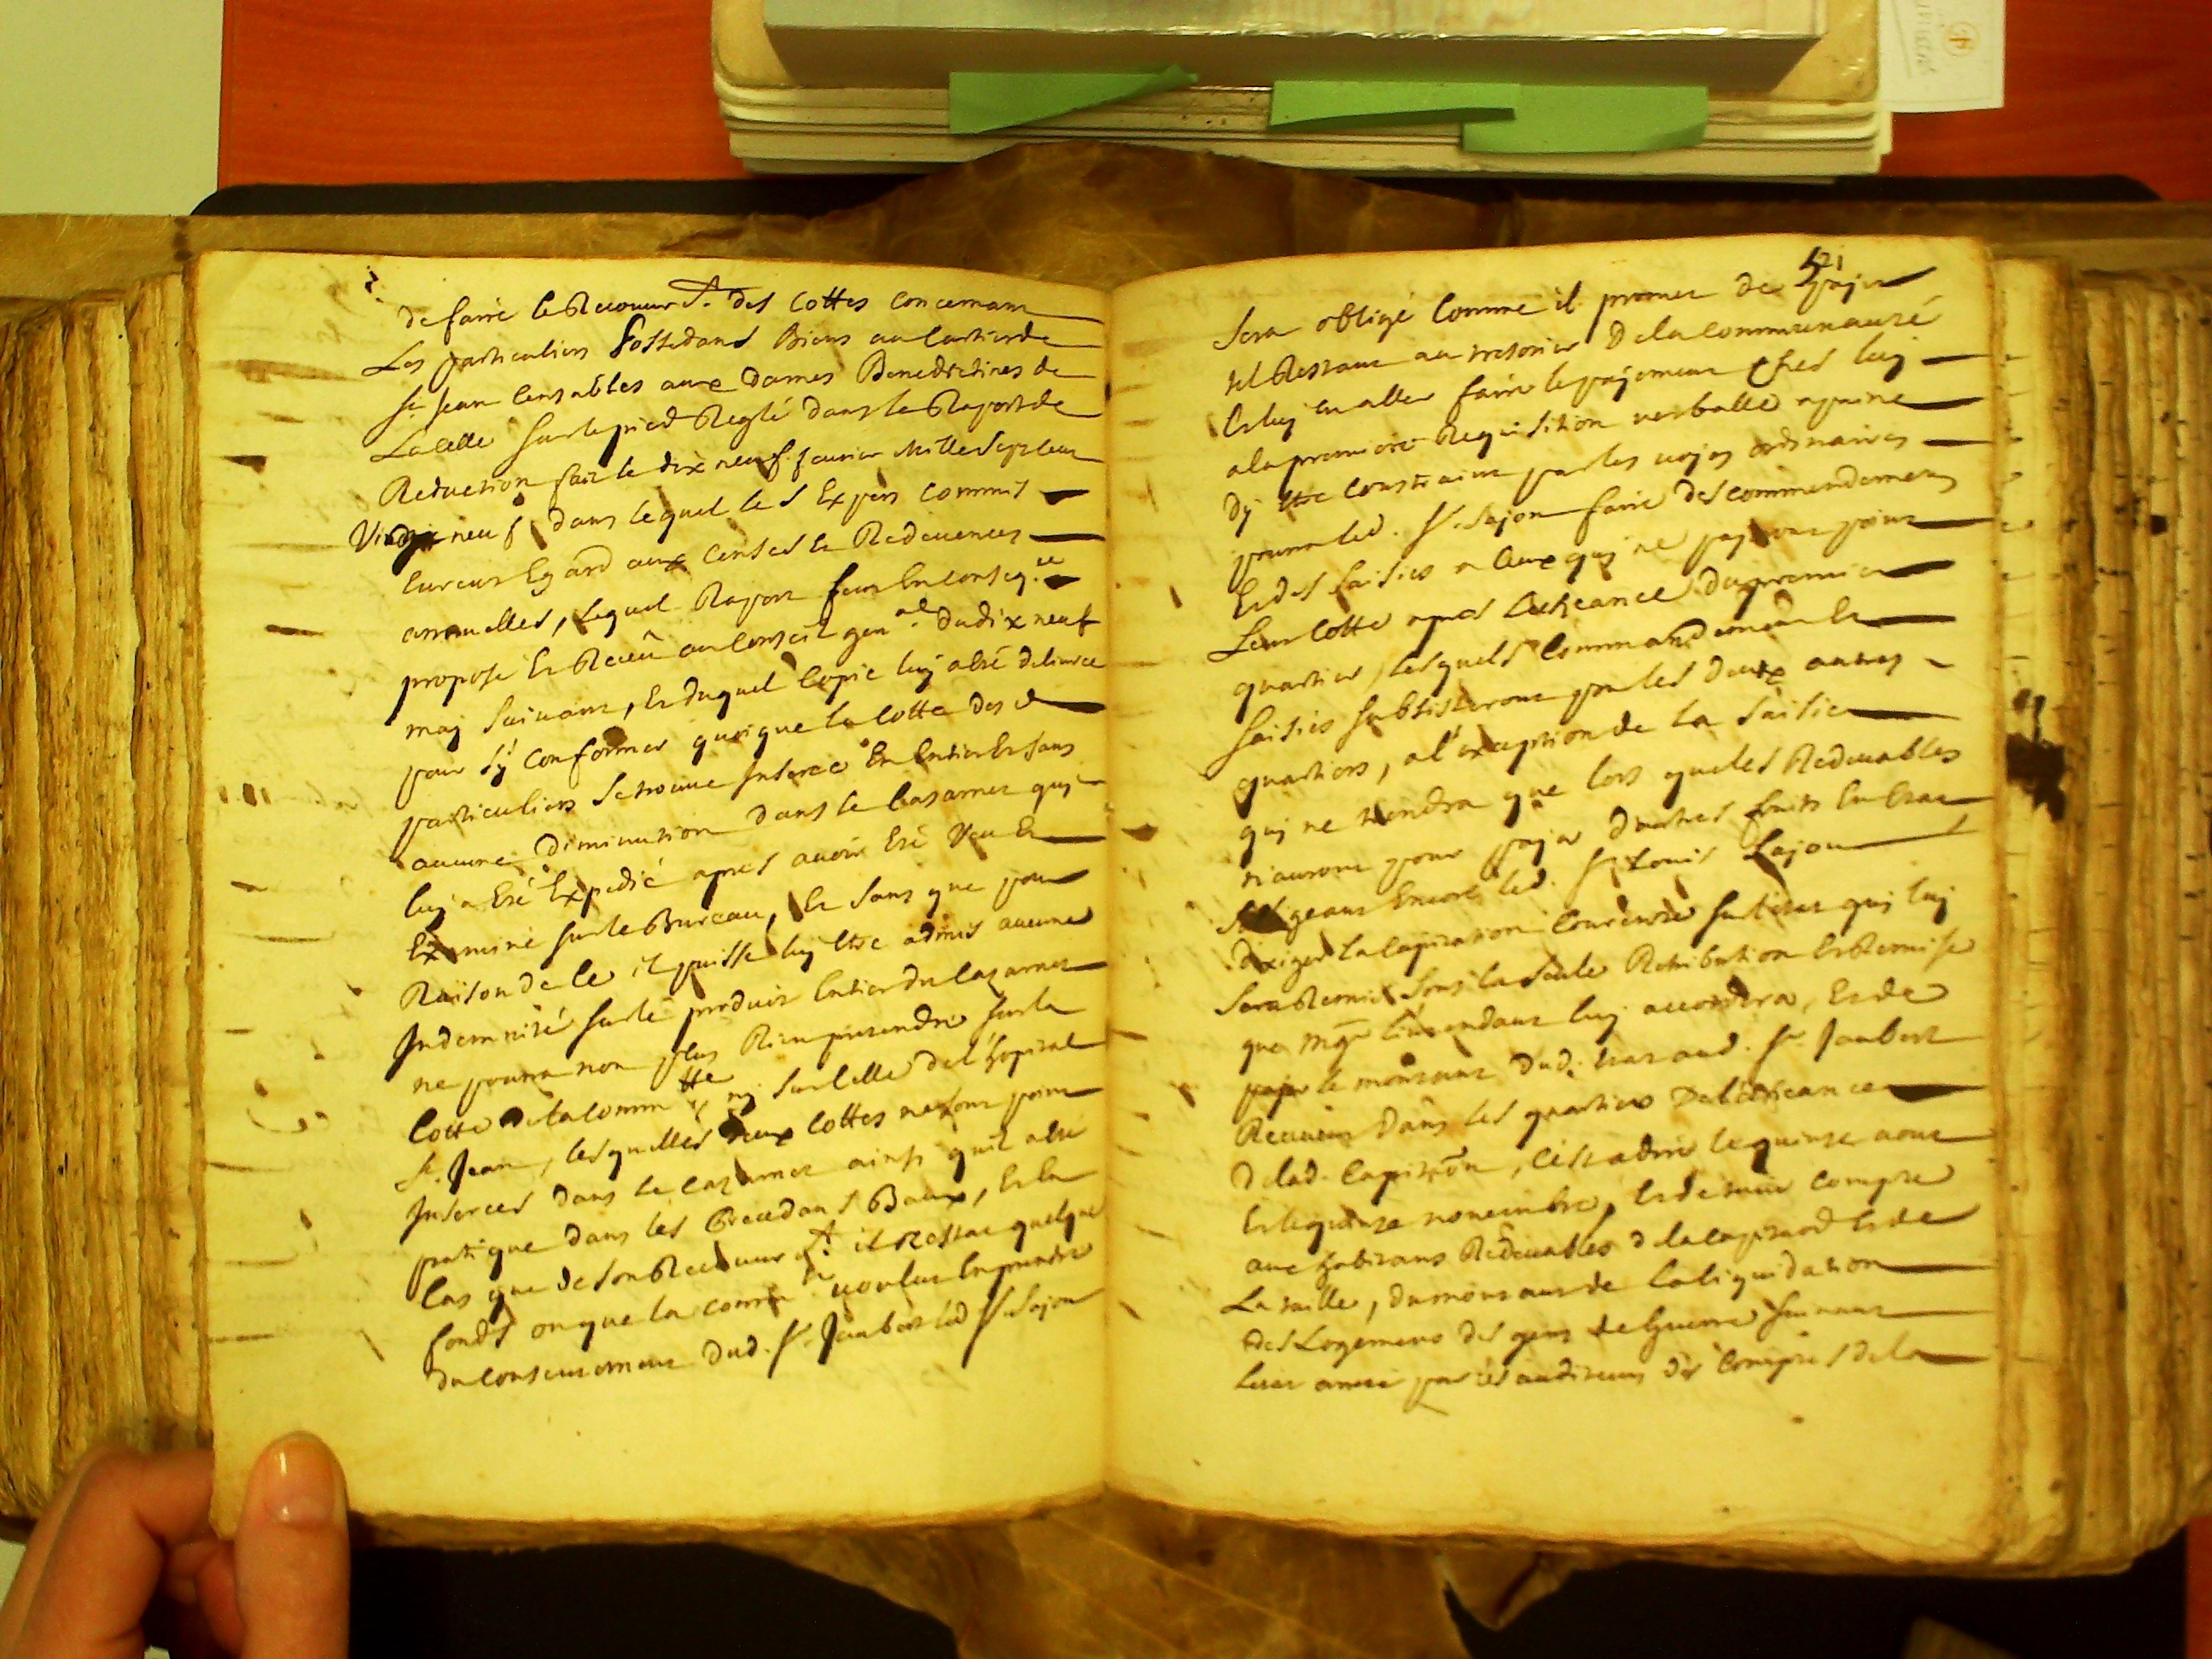 de faire le Recouurem.t des Cottes Concernant
Les particuliers Possedans Biens au Cartier de
St Jean Censables aux Dames Benedictines de
Lacelle sur le pied Reglé dans le Raport de
Reduction fait le dix neuf feurier Mille Sept Cent
Vingt neuf dans lequel les Expers commis
Eurent Egard aux Censes Et Redeuences
annuelles, lequel Raport feut En conseq.ce
propose Et Receu au Conseil gen.al du dix neuf
may Suiuant, Et duquel Copie luy a Esté deliuree
pour sy conformer quoique la Cotte des d
particuliers se trouue Inseree En Entier Et sans
aucune Diminution dans le Cazarnet qui
luy a Esté Expedié apres auoir Esté Veu Et
Examiné sur le Bureau, Et sans que pour
Raison de Ce il puisse luy Etre admis aucune
Indemnité sur le produit Entier du Cazarnet
ne pourra non plus Rien pretendre sur la
Cotte de la Comm.tte ny sur Celle de l'hopital
St. Jean, lesquelles deux Cottes ne sont point
Inserees dans le Cazarnet ainsi quil a Esté
pratiqué dans les Precedans Baux, Et En
Cas que de son Recouurem.t il Restat quelque
fonds ou que la Comm.te voulut Emprunter
du Consentement dud. Sr. Jaubert led Sr Lajon
421
Sera obligé Comme il promet de payer
tel Restant au tresorier de la Communauté
Et luy En aller faire le payement Ches luy
a la premiere Requisition verballe a peine
dy Etre Constraint par les voyes ordinaires
pourra led. Sr. Lajon faire des commendemens
Et des saisies a Ceux quy ne payeront point
Leur Cotte apres l'Echeance du premier
quartier, lesquels Commandemens Et
saisies subsisteront pour les deux autres
quartiers, a l'exeption de la saisie
quy ne tiendra que lors que les Redeuables
n'auront pour payer d'autres fruits En Etat
Exigeant Encore led. Sr Louis Lajon
d'exiger la Capitation Courente sur l'etat quy luy
sera Remis sous la seule Retribution Et Remise
que Mgr. l'intendant luy accordera, Et de
payer le montant dud. Etat aud. Sr. Jaubert
Receueur dans les quartiers de l'Echeance
de lad. Capitaon, C'est a dire le quinze aout
Et le quinze nouembre, Et de tenir Compte
aux habitans Redeuables de la Capitaon Et de
La taille, du montant de la liquidation
des Logemens des gens de Guerre suiuant
l'etat arreté par les auditeurs des Comptes de la